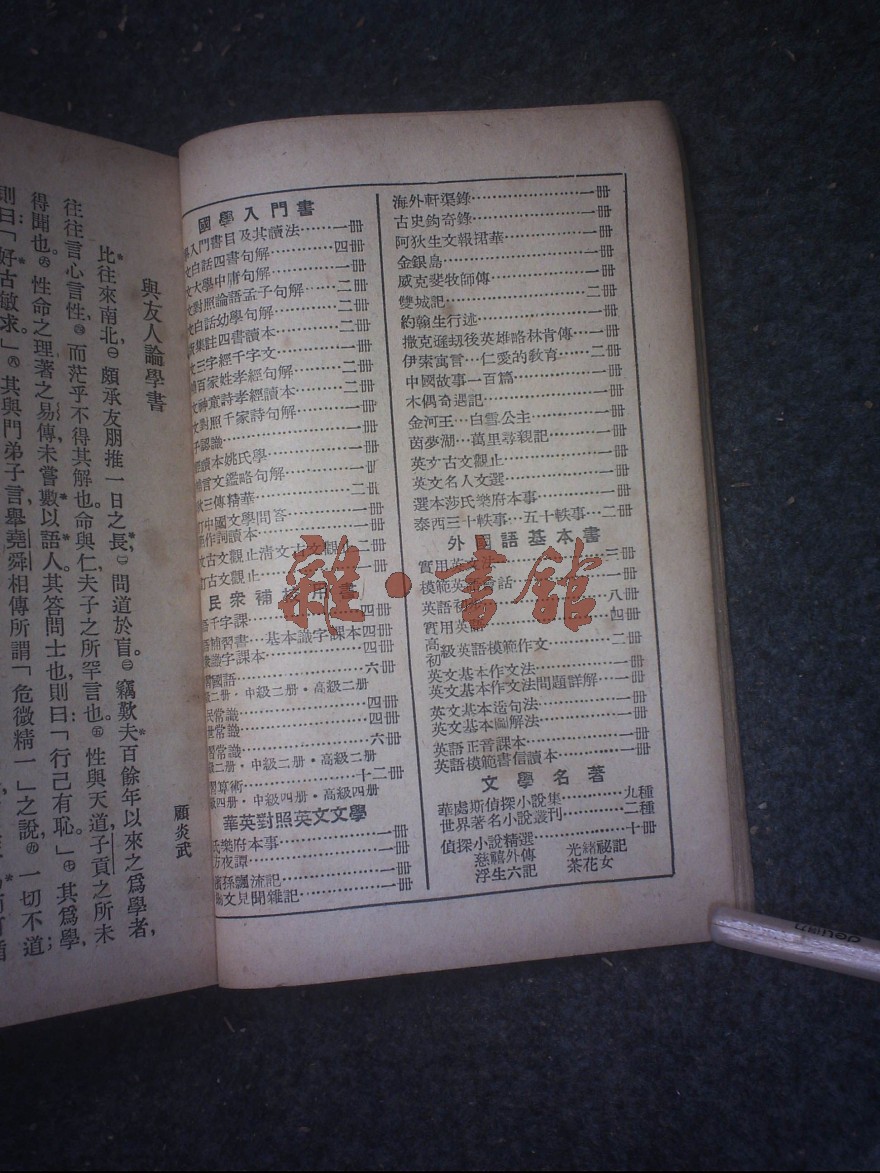 與友人論學書
顧炎武
比往來南北㊀頗承友朋推一日之長㊁問道於盲。㊂竊歎夫百餘年以來之爲學者,
往往言心言性,㊃而茫乎不得其解也。命與仁夫子之所罕言也。㊄性與天道子貢之所未
得聞也。㊅性命之理著之易傳,未嘗數以語人。其答問士也,則曰「行己有恥。」㊆其爲學,
則曰「好古敏求。」㊇其與門弟子言,舉堯舜相傳所謂「危微精一」之說,㊈一切不道;
國學入門書
學入門書目及其讀法……一冊
文白話四書句解……四冊
文大學中庸句解……一冊
文對照論語孟子句解……二冊
文白話幼學句解……二冊
集註四書讀本……二冊
文三字經千字文……一冊
百家姓孝經句解……二冊
文神童詩孝經讀本……一冊
文對照千家詩句解……一冊
子認識……一冊
讀本姚氏學……一冊
言文鑑略句解……一冊
三傳精華……二冊
訂中國文學問答……一冊
作詞讀本……一冊
文古文觀止清文古文觀止二冊
訂古文觀止……一冊
民衆補校用書
語千字課……四冊
補習書…基本識字課本四冊
識字課本……四冊
國語……六冊
級二册·中級二册·高級二册
民常識……四冊
常識……四冊
習常識……六冊
級二册·中級二册·高級二册
習算術……十二冊
級四册·中級四册·高級四册
華英對照英文文學
氏樂府本事……一冊
夜譚……一冊
孫飄流記……一冊
文見聞雜記……一冊
海外軒渠錄……一冊
古史鈎奇錄……一冊
阿狄生文報捃華……一冊
金銀島……二冊
威克斐牧師傳……一冊
雙城記……二冊
約翰生行述……一冊
撒克遜刼後英雄略林肯傳…一冊
伊索寓言…仁愛的敎育……二冊
中國故事一百篇……一冊
木偶奇遇記……一冊
金河王…白雪公主……一冊
茵夢湖…萬里尋親記……一冊
英文古文觀止……一冊
英文名人文選……一冊
選本莎氏樂府本事……一冊
泰西三十軼事…五十軼事…二冊
外國語基本書
實用英文法……三冊
模範英語會話……一冊
英語初步……八冊
實用英語……四冊
高初級英語模範作文……二冊
英文基本作文法……一冊
英文基本作文法問題詳解……一冊
英文基本造句法……一冊
英文基本圖解法……一冊
英語正音課本……一冊
英語模範書信讀本……一冊
文學名著
華處斯偵探小說集……九種
世界著名小說叢刊……二種
偵探小說精選……十冊
慈禧外傳 光緒祕記
浮生六記 茶花女
雜·書館
deli